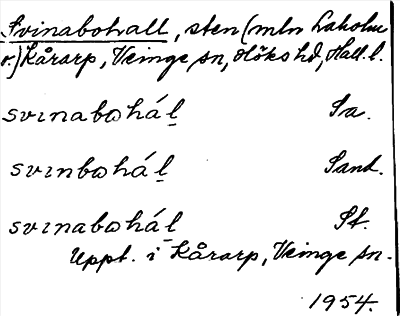 Svinabohall, sten (mln Laholm
o.) Kårarp, Veinge sn, Höks hd, Hall. l.
svinabohál Sa.
svinbohál Sand.
svinabohál St.
Uppt. i Kårarp, Veinge sn.
1954.